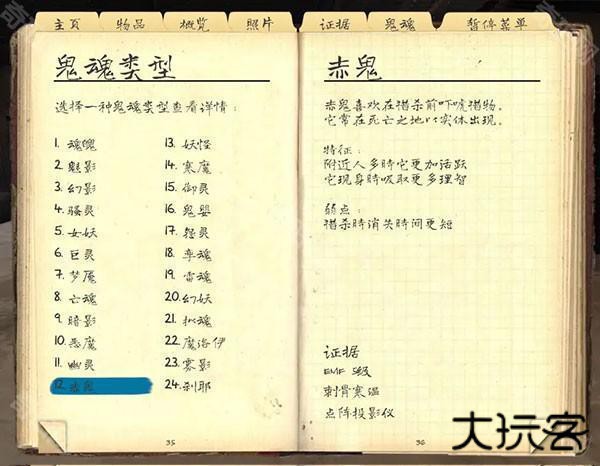 主页 物品 概览 照片 证据 鬼魂 暂停菜单
鬼魂类型
选择一种鬼魂类型查看详情:
1. 魂魄
2. 魅影
3. 幻影
4. 骚灵
5. 女妖
6. 巨灵
7. 梦魇
8. 亡魂
9. 暗影
10. 恶魔
11. 幽灵
12. 赤鬼
13. 妖怪
14. 寒魔
15. 御灵
16. 鬼婴
17. 怨灵
18. 孪魂
19. 雷魂
20. 幻妖
21. 拟魂
22. 魔洛伊
23. 雾影
24. 刹耶
35
赤鬼
赤鬼喜欢在猎杀前吓唬猎物。
它常在死亡之地以实体出现。
特征:
附近人多時它更加活跃
它现身時吸取更多理智
弱点:
猎杀時消失時间更短
证据
EMF 5级
刺骨寒温
点阵投影仪
36
大玩客